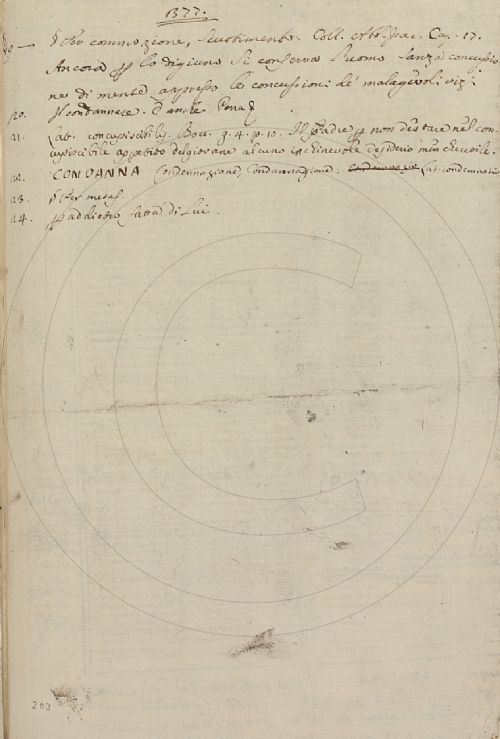 1377.
§ Per commozione, scotimento. Coll. Ab. Isac. Cap. 17.
Ancora per lo digiuno si conserva l'uomo sanza concussio
ne di mente appresso le concussioni de' malagevoli vizi
20. Il condannare. E anche Pena
21. Lat. concupiscibilis. Bocc. g. 4. p. 10. Il padre per non destare nel con
cupiscibile appetito del giovane alcuno inchinevole desiderio men che utile.
22. CONDANNA Condennagione, Condannazione. Lat. condemnatio
23. § Per metaf.
24. per addietro fatta di lui.
203